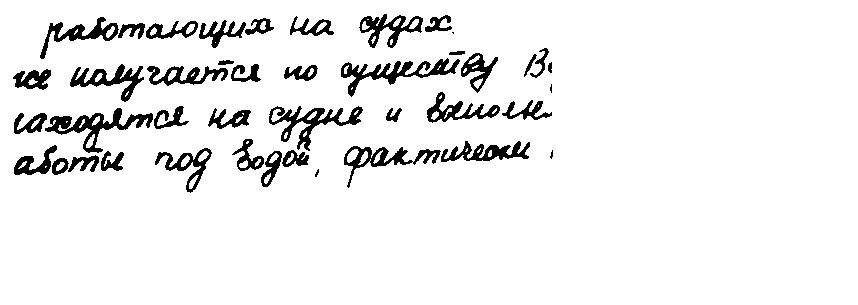 работающих на судах.
же получается по существу В
находятся на судне и выполн
аботы под водой, фактически